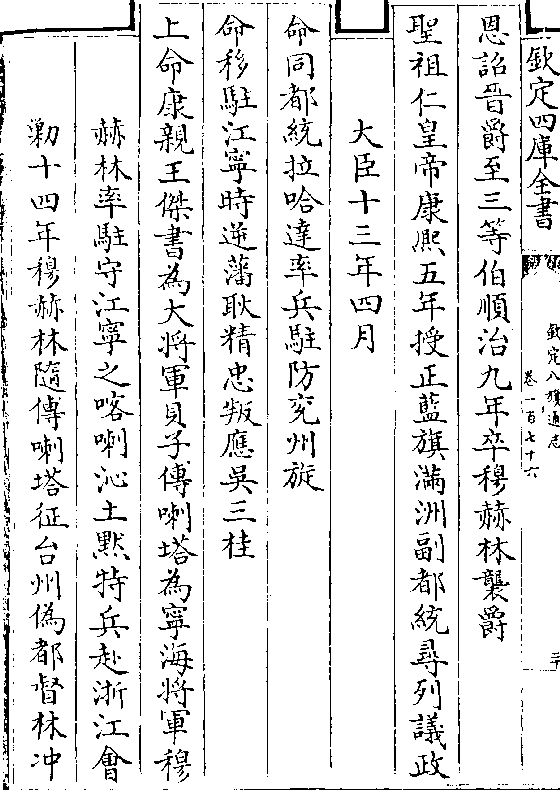 欽定四庫全書
欽定八旗通志
卷一百七十六
二十
恩詔晉爵至三等伯順治九年卒穆赫林襲爵
聖祖仁皇帝康熙五年授正藍旗滿洲副都統尋列議政
大臣十三年四月
命同都統拉哈達率兵駐防兗州旋
命移駐江寧時逆藩耿精忠叛應吳三桂
上命康親王傑書為大將軍貝子傅喇塔為寧海將軍穆
赫林率駐守江寧之喀喇沁土默特兵赴浙江會
勦十四年穆赫林隨傅喇塔征台州偽都督林冲